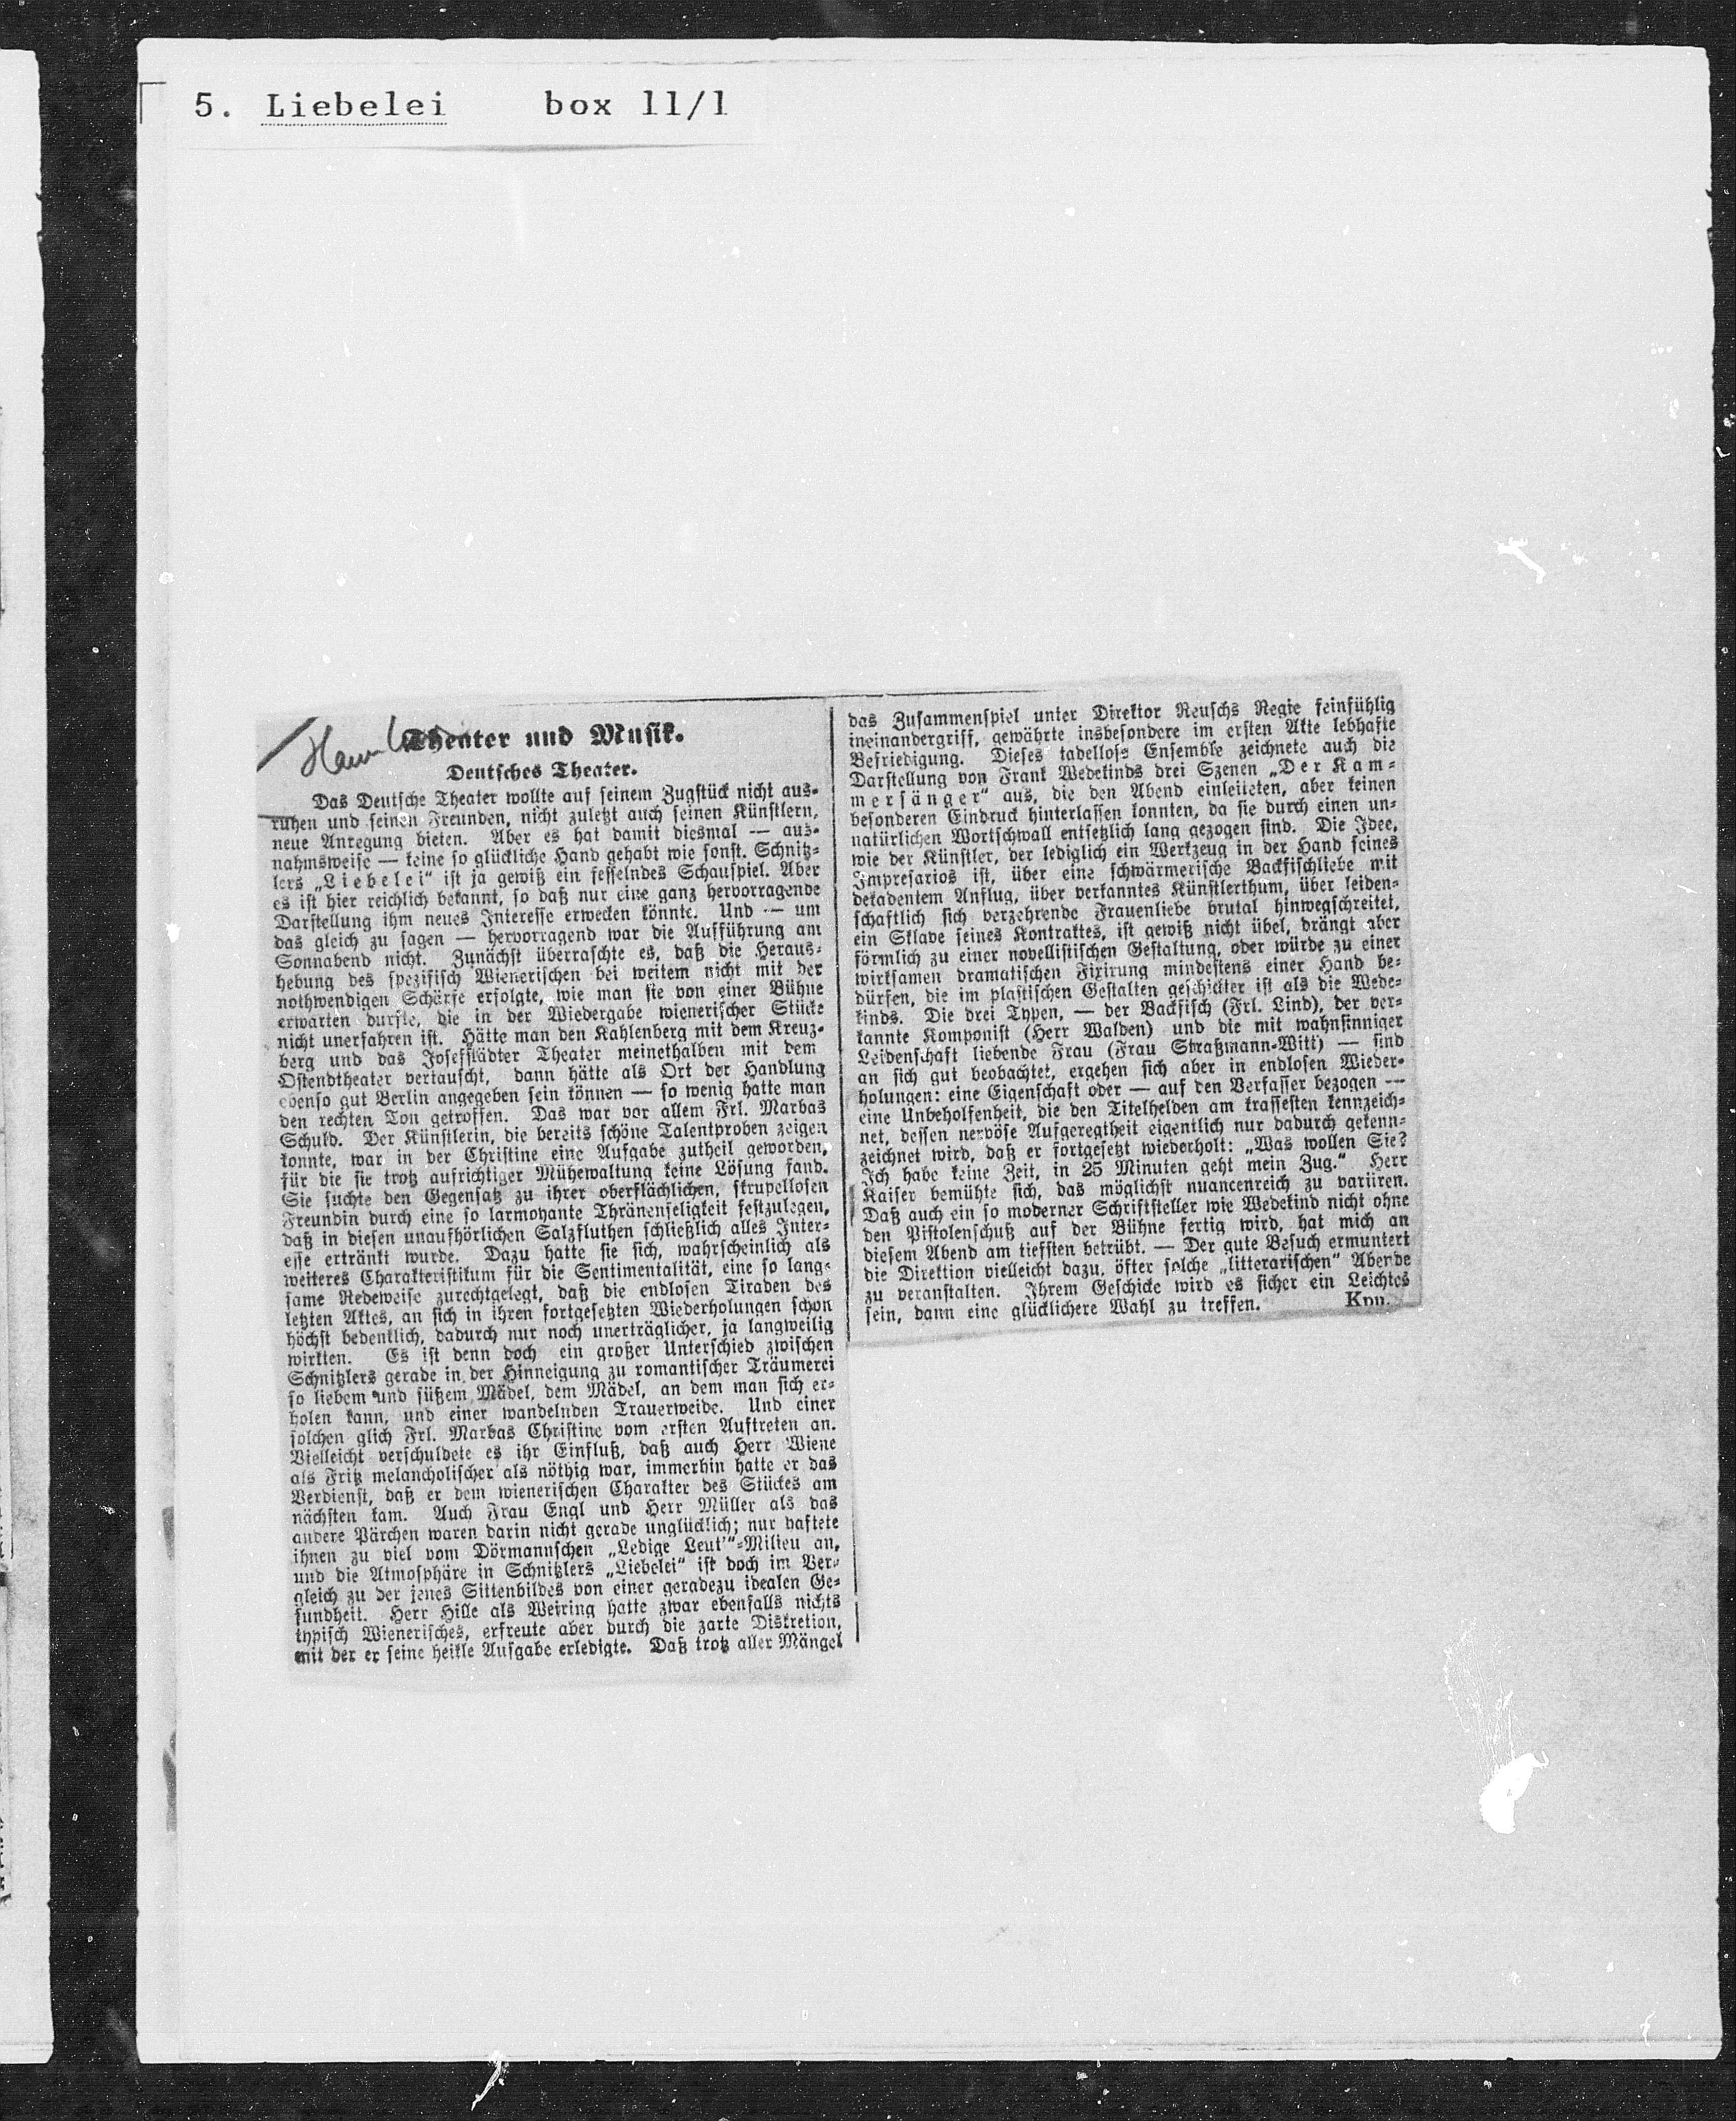 5. Liebelei box 11/1
Theater und Musik.
Deutsches Theater.
Das Deutsche Theater wollte auf seinem Zugstück nicht aus-
ruhen und seinen Freunden, nicht zuletzt auch seinen Künstlern,
neue Anregung bieten. Aber es hat damit diesmal — aus-
nahmsweise — keine so glückliche Hand gehabt wie sonst. Schnitz-
lers „Liebelei“ ist ja gewiß ein fesselndes Schauspiel. Aber
es ist hier reichlich bekannt, so daß nur eine ganz hervorragende
Darstellung ihm neues Interesse erwecken könnte. Und — um
das gleich zu sagen — hervorragend war die Aufführung am
Sonnabend nicht. Zunächst überraschte es, daß die Heraus-
hebung des spezifisch Wienerischen bei weitem nicht mit der
nothwendigen Schärfe erfolgte, wie man sie von einer Bühne
erwarten durfte, die in der Wiedergabe wienerischer Stücke
nicht unerfahren ist. Hätte man den Kahlenberg mit dem Kreuz-
berg und das Josefstädter Theater meinethalben mit dem
Ostendtheater vertauscht, dann hätte als Ort der Handlung
ebenso gut Berlin angegeben sein können — so wenig hatte man
den rechten Ton getroffen. Das war vor allem Frl. Marbas
Schuld. Der Künstlerin, die bereits schöne Talentproben zeigen
konnte, war in der Christine eine Aufgabe zutheil geworden,
für die sie trotz aufrichtiger Mühewaltung keine Lösung fand.
Sie suchte den Gegensatz zu ihrer oberflächlichen, skrupellosen
Freundin durch eine so larmoyante Thränenseligkeit festzulegen,
daß in diesen unaufhörlichen Salzfluthen schließlich alles Inter-
esse ertränkt wurde. Dazu hatte sie sich, wahrscheinlich als
weiteres Charakteristikum für die Sentimentalität, eine so lang-
same Redeweise zurechtgelegt, daß die endlosen Tiraden des
letzten Aktes, an sich in ihren fortgesetzten Wiederholungen schon
höchst bedenklich, dadurch nur noch unerträglicher, ja langweilig
wirkten. Es ist denn doch ein großer Unterschied zwischen
Schnitzlers gerade in der Hinneigung zu romantischer Träumerei
so liebem und süßem Mädel, dem Mädel, an dem man sich er-
holen kann, und einer wandelnden Trauerweide. Und einer
solchen glich Frl. Marbas Christine vom ersten Auftreten an.
Vielleicht verschuldete es ihr Einfluß, daß auch Herr Wiene
als Fritz melancholischer als nöthig war, immerhin hatte er das
Verdienst, daß er dem wienerischen Charakter des Stückes am
nächsten kam. Auch Frau Engl und Herr Müller als das
andere Pärchen waren darin nicht gerade unglücklich; nur haftete
ihnen zu viel vom Dörmannschen „Ledige Leut'“-Milieu an,
und die Atmosphäre in Schnitzlers „Liebelei“ ist doch im Ver-
gleich zu der jenes Sittenbildes von einer geradezu idealen Ge-
sundheit. Herr Hille als Weiring hatte zwar ebenfalls nichts
typisch Wienerisches, erfreute aber durch die zarte Diskretion,
mit der er seine heikle Aufgabe erledigte. Daß trotz aller Mängel
das Zusammenspiel unter Direktor Reuschs Regie feinfühlig
ineinandergriff, gewährte insbesondere im ersten Akte lebhafte
Befriedigung. Dieses tadellose Ensemble zeichnete auch die
Darstellung von Frank Wedekinds drei Szenen „Der Kam-
mersänger“ aus, die den Abend einleiteten, aber keinen
besonderen Eindruck hinterlassen konnten, da sie durch einen un-
natürlichen Wortschwall entsetzlich lang gezogen sind. Die Idee,
wie der Künstler, der lediglich ein Werkzeug in der Hand seines
Impresarios ist, über eine schwärmerische Backfischliebe mit
dekadentem Anflug, über verkanntes Künstlerthum, über leiden-
schaftlich sich verzehrende Frauenliebe brutal hinwegschreitet,
ein Sklave seines Kontraktes, ist gewiß nicht übel, drängt aber
förmlich zu einer novellistischen Gestaltung, oder würde zu einer
wirksamen dramatischen Fixirung mindestens einer Hand be-
dürfen, die im plastischen Gestalten geschickter ist als die Wede-
kinds. Die drei Typen, — der Backfisch (Frl. Lind), der ver-
kannte Komponist (Herr Walden) und die mit wahnsinniger
Leidenschaft liebende Frau (Frau Straßmann-Witt) — sind
an sich gut beobachtet, ergehen sich aber in endlosen Wieder-
holungen: eine Eigenschaft oder — auf den Verfasser bezogen —
eine Unbeholfenheit, die den Titelhelden am krassesten kennzeich-
net, dessen nervöse Aufgeregtheit eigentlich nur dadurch gekenn-
zeichnet wird, daß er fortgesetzt wiederholt: „Was wollen Sie?
Ich habe keine Zeit, in 25 Minuten geht mein Zug.“ Herr
Kaiser bemühte sich, das möglichst nuancenreich zu variiren.
Daß auch ein so moderner Schriftsteller wie Wedekind nicht ohne
den Pistolenschuß auf der Bühne fertig wird, hat mich an
diesem Abend am tiefsten betrübt. — Der gute Besuch ermuntert
die Direktion vielleicht dazu, öfter solche „litterarischen“ Abende
zu veranstalten. Ihrem Geschicke wird es sicher ein Leichtes
sein, dann eine glücklichere Wahl zu treffen. Kpp.